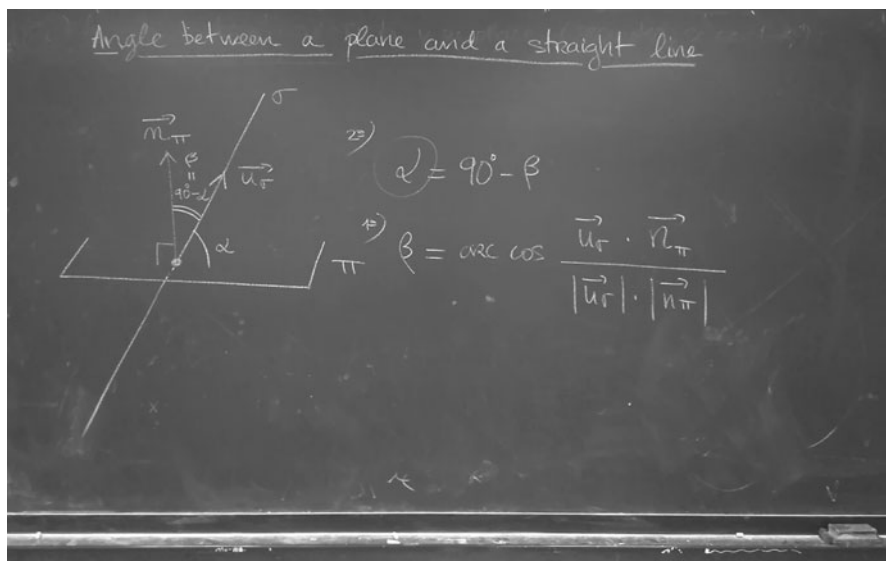 Angle between a plane and a straight line
r
n⃗_π
β
=
90°-α
u⃗_r
α
π
2º)
α = 90° - β
1º)
β = arc cos (u⃗_r · n⃗_π) / (|u⃗_r| · |n⃗_π|)